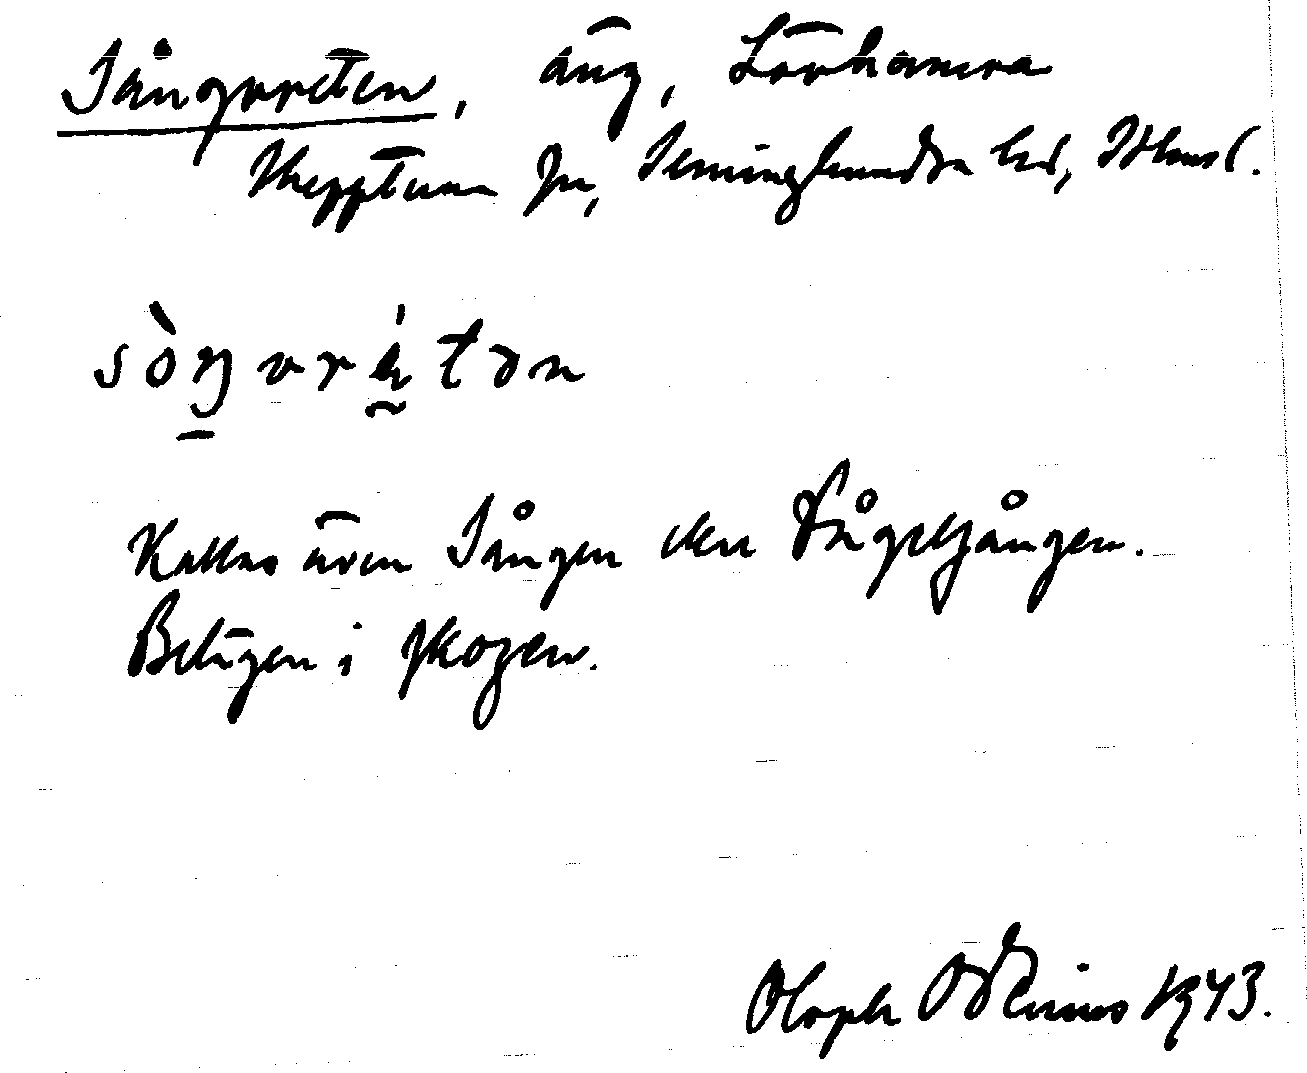 Sångvreten, äng, Lövhamra
Skepptuna sn, Seminghundra hd, Stlms l.
sòŋvrétən
Kallas även Sången den Fågelsången.
Belägen i skogen.
Oloph Odenius 1943.